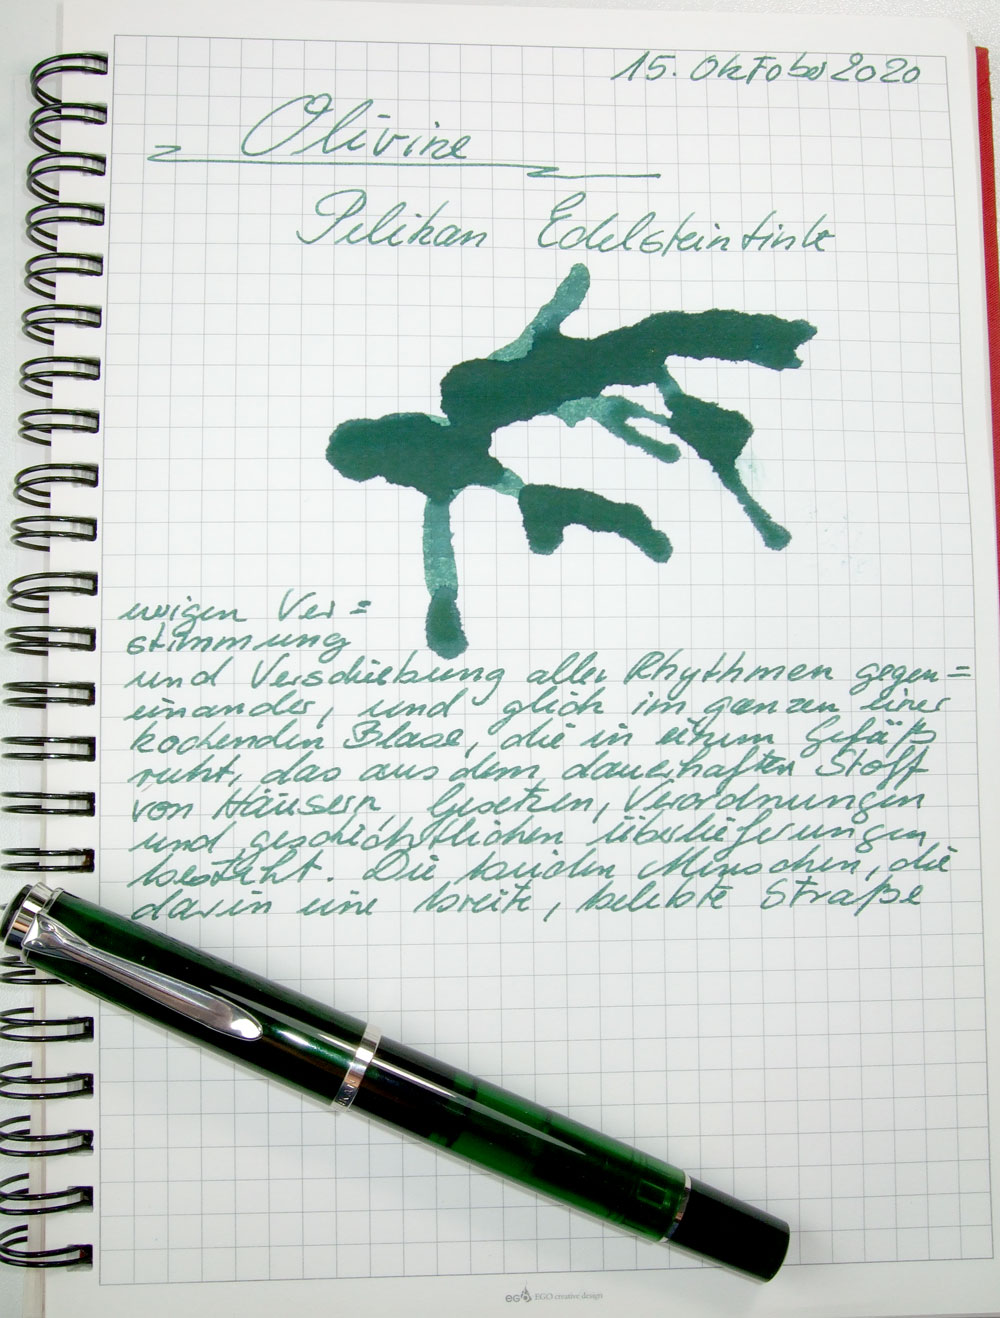 15. Oktober 2020
Olivine
Pelikan Edelsteintinte
ewigen Ver=
stimmung
und Verschiebung aller Rhythmen gegen=
einander, und glich im ganzen einer
kochenden Blase, die in einem Gefäß
ruht, das aus dem dauerhaften Stoff
von Häusern, Gesetzen, Verordnungen
und geschichtlichen Überlieferungen
besteht. Die beiden Menschen, die
darin eine breite, belebte Straße
EGO EGO creative design